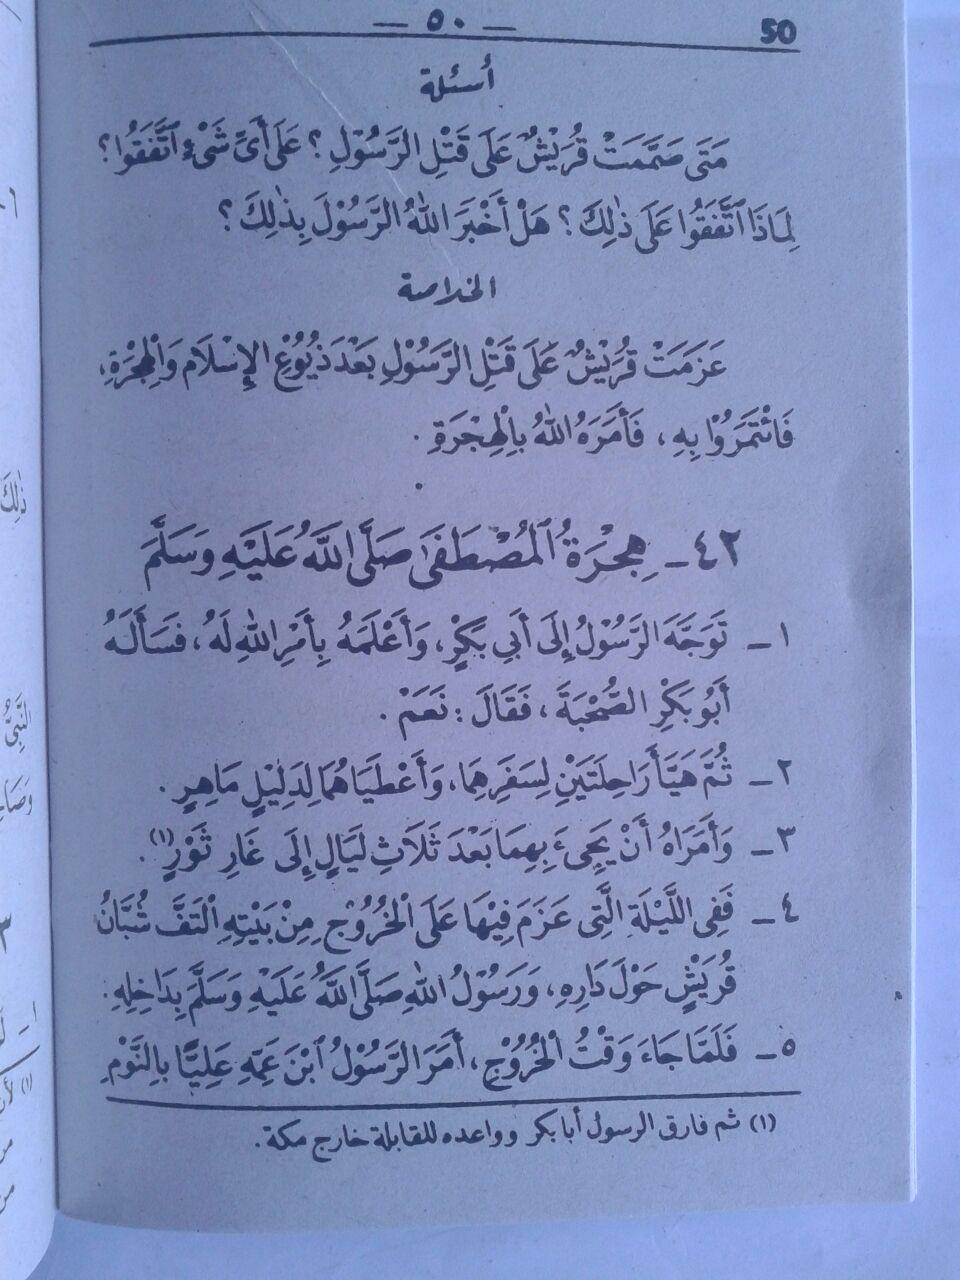 50 — ٥٠ —
أَسْئِلَة
مَتَى صَمَّمَتْ قُرَيْشٌ عَلَى قَتْلِ الرَّسُوْلِ ؟ عَلَى أَيِّ شَيْءٍ اتَّفَقُوا ؟
لِمَاذَا اتَّفَقُوا عَلَى ذٰلِكَ ؟ هَلْ أَخْبَرَ اللهُ الرَّسُوْلَ بِذٰلِكَ ؟
الخلاصة
عَزَمَتْ قُرَيْشٌ عَلَى قَتْلِ الرَّسُوْلِ بَعْدَ ذُيُوْعِ الإِسْلَامِ وَالْهِجْرَةِ،
فَائْتَمَرُوْا بِهِ ، فَأَمَرَهُ اللهُ بِالْهِجْرَةِ .
٤٢ـ هِجْرَةُ الْمُصْطَفَى صَلَّى اللَّهُ عَلَيْهِ وَسَلَّمَ
١ ـ تَوَجَّهَ الرَّسُوْلُ إِلَى أَبِي بَكْرٍ، وَأَعْلَمَهُ بِأَمْرِ اللهِ لَهُ، فَسَأَلَهُ
أَبُو بَكْرٍ الصُّحْبَةَ ، فَقَالَ : نَعَمْ .
٢ ـ ثُمَّ هَيَّأَ رَاحِلَتَيْنِ لِسَفَرِهِمَا، وَأَعْطَيَاهُمَا لِدَلِيْلٍ مَاهِرٍ .
٣ ـ وَأَمَرَاهُ أَنْ يَجِيءَ بِهِمَا بَعْدَ ثَلَاثِ لَيَالٍ إِلَى غَارِ ثَوْرٍ(١).
٤ ـ فَفِي اللَّيْلَةِ الَّتِي عَزَمَ فِيْهَا عَلَى الْخُرُوْجِ مِنْ بَيْتِهِ الْتَفَّ شُبَّانُ
قُرَيْشٍ حَوْلَ دَارِهِ، وَرَسُوْلُ اللهِ صَلَّى اللَّهُ عَلَيْهِ وَسَلَّمَ بِدَاخِلِهِ.
٥ ـ فَلَمَّا جَاءَ وَقْتُ الْخُرُوْجِ ، أَمَرَ الرَّسُوْلُ ابْنَ عَمِّهِ عَلِيًّا بِالنَّوْمِ
(١) ثم فارق الرسول أبا بكر وواعده للقابلة خارج مكة .